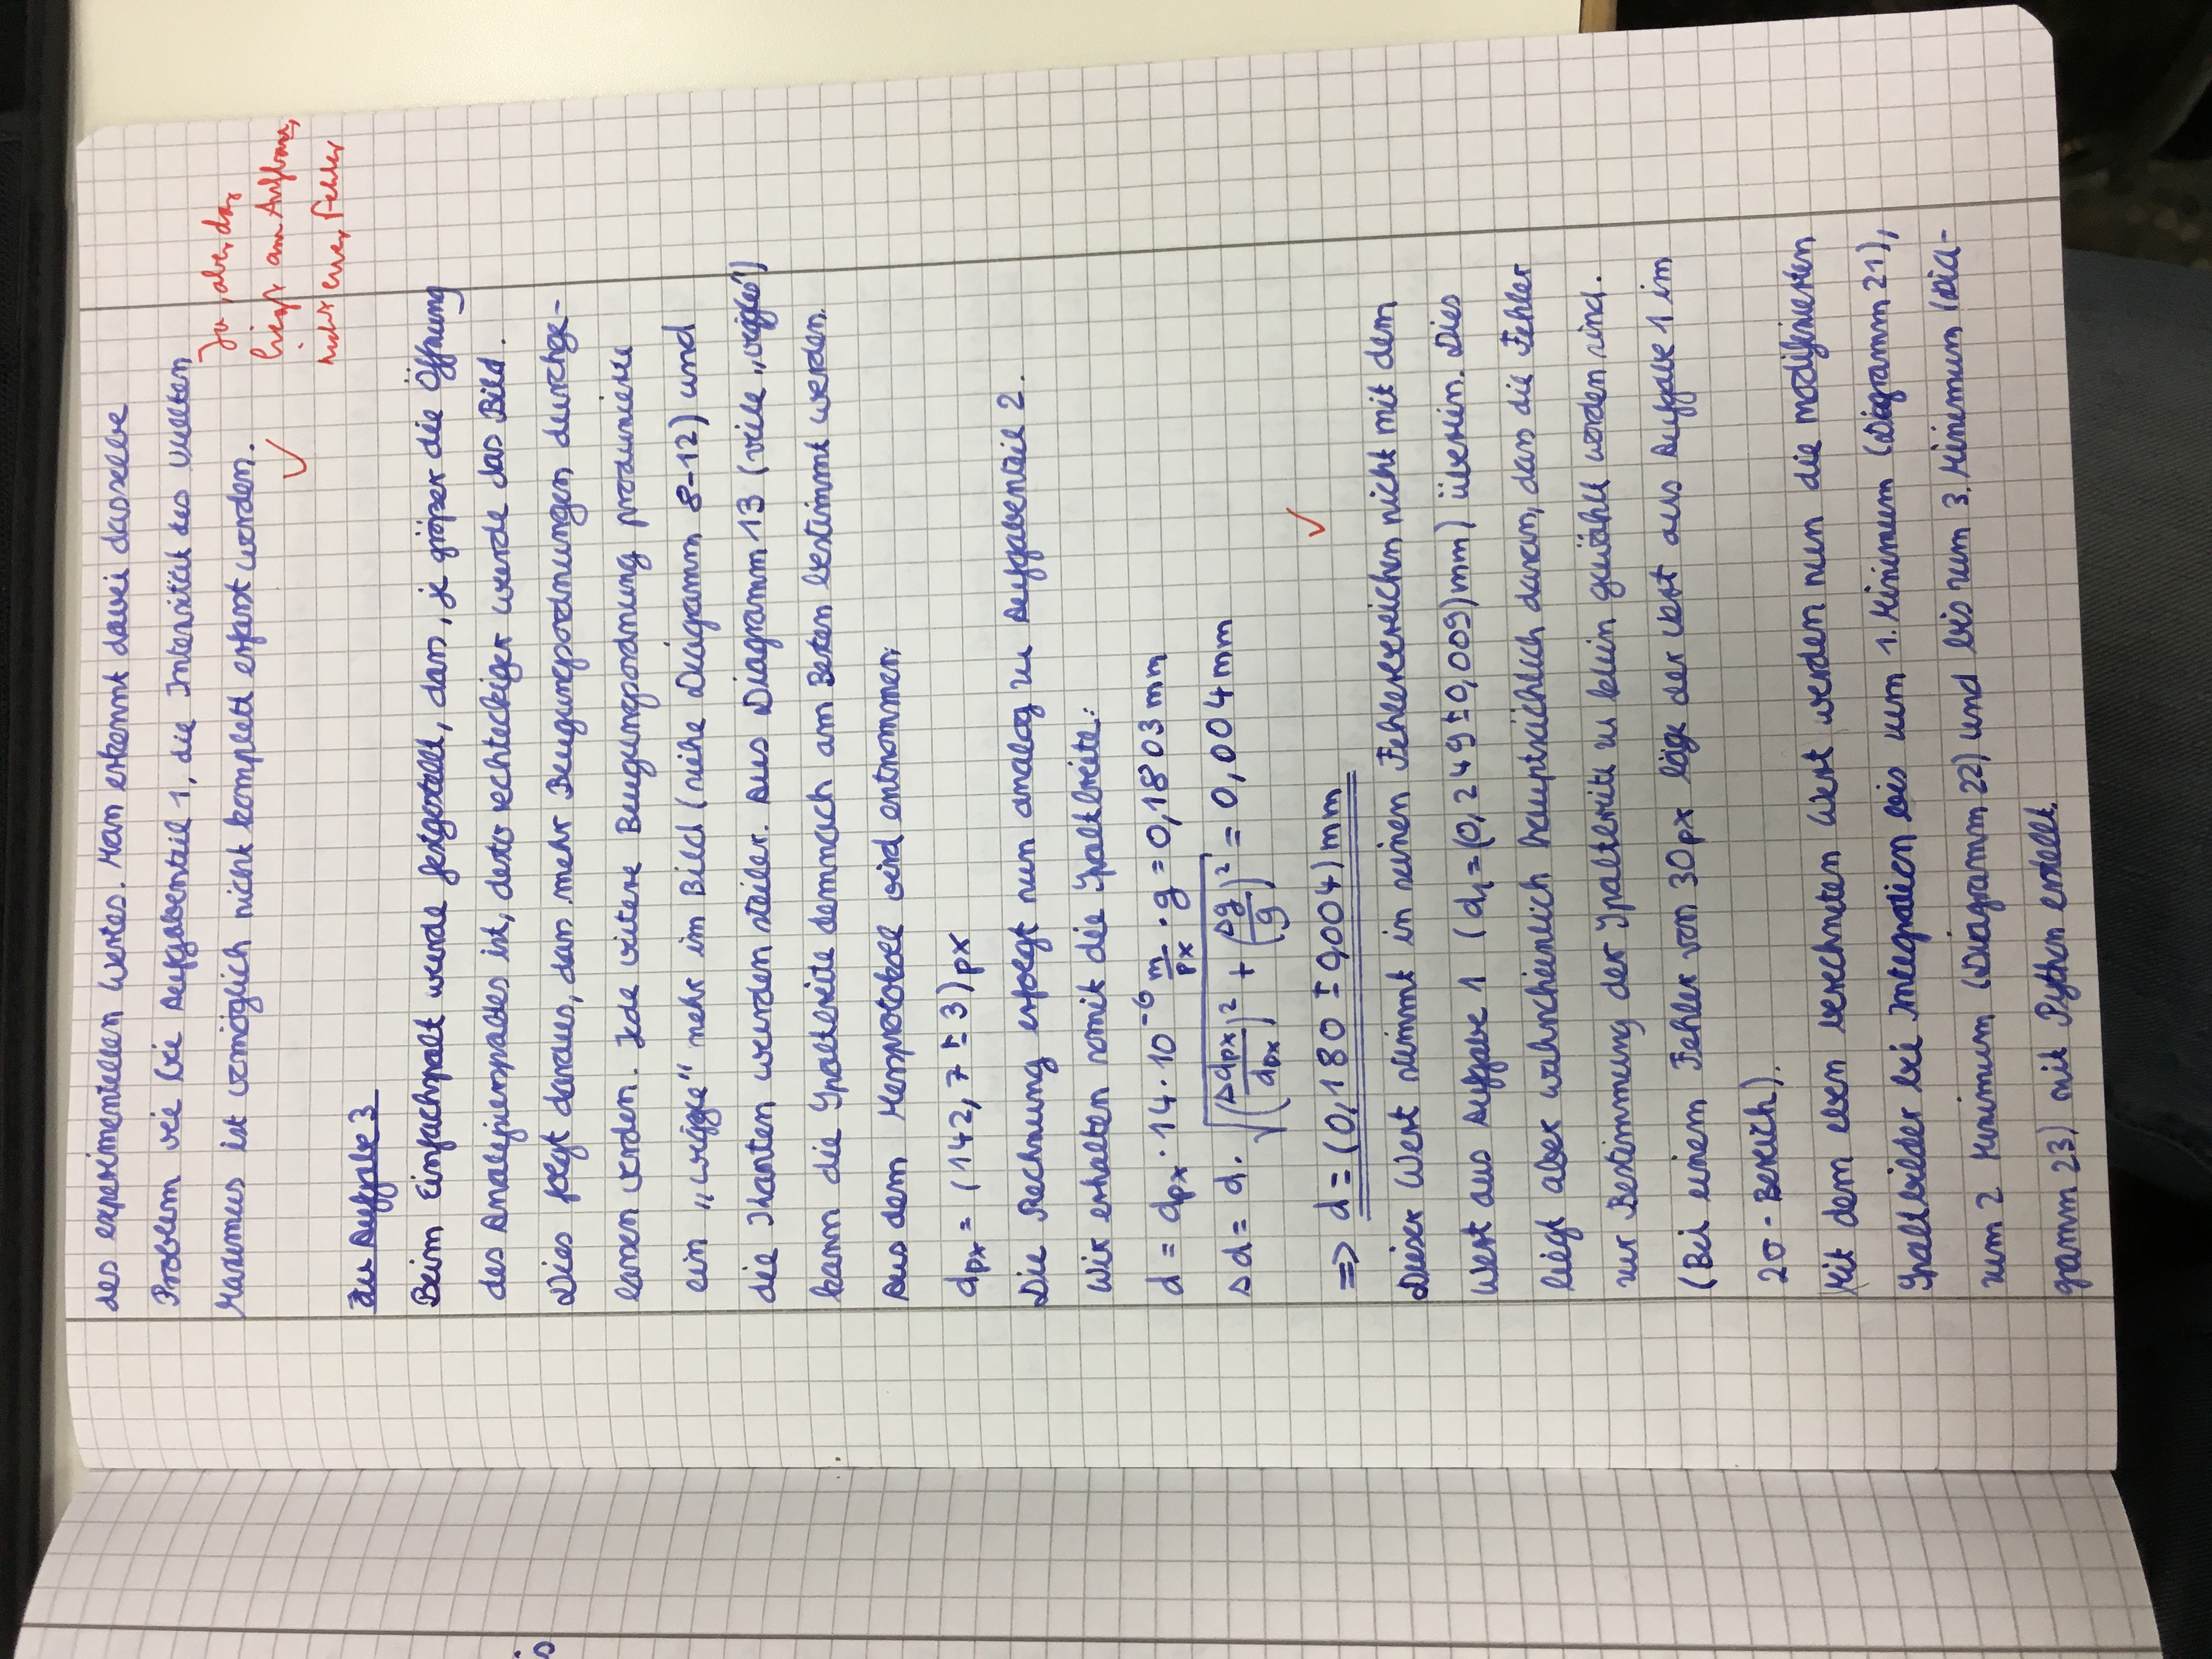 des experimentellen Wertes. Man erkennt dabei dasselbe
Problem wie bei Aufgabenteil 1, die Intensität des nullten
Maximus ist womöglich nicht komplett erfasst worden.
Ja, aber das
liegt am Aufbau,
nicht euer Fehler
✓
zu Aufgabe 3
Beim Einfachspalt wurde festgestellt, dass, je größer die Öffnung
des Analysierspaltes ist, desto rechteckiger wurde das Bild.
Dies folgt daraus, dass mehr Beugungsordnungen durchge-
lassen werden. Jede weitere Beugungsordnung produzierte
ein „wiggle" mehr im Bild (siehe Diagramm 8-12) und
die Kanten wurden steiler. Aus Diagramm 13 (viele „wiggles")
kann die Spaltbreite demnach am Besten bestimmt werden.
Aus dem Messprotokoll wird entnommen:
d_px = (142,7 ± 3) px
Die Rechnung erfolgt nun analog zu Aufgabenteil 2.
Wir erhalten somit die Spaltbreite:
d = d_px · 14 · 10^-6 m/px · g = 0,1803 mm
Δd = d · √((Δd_px/d_px)² + (Δg/g)²) = 0,004 mm
=> d = (0,180 ± 0,004) mm
✓
Dieser Wert stimmt in seinen Fehlerbereichen nicht mit dem
Wert aus Aufgabe 1 (d₁ = (0,249 ± 0,009) mm) überein. Dies
liegt aber wahrscheinlich hauptsächlich daran, dass die Fehler
zur Bestimmung der Spaltbreite zu klein gewählt worden sind.
(Bei einem Fehler von 30 px läge der Wert aus Aufgabe 1 im
2σ - Bereich).
Mit dem eben berechneten Wert werden nun die modifizierten
Spaltbilder bei Integration bis zum 1. Minimum (Diagramm 21),
zum 2 Minimum (Diagramm 22) und bis zum 3. Minimum (Dia-
gramm 23) mit Python erstellt.